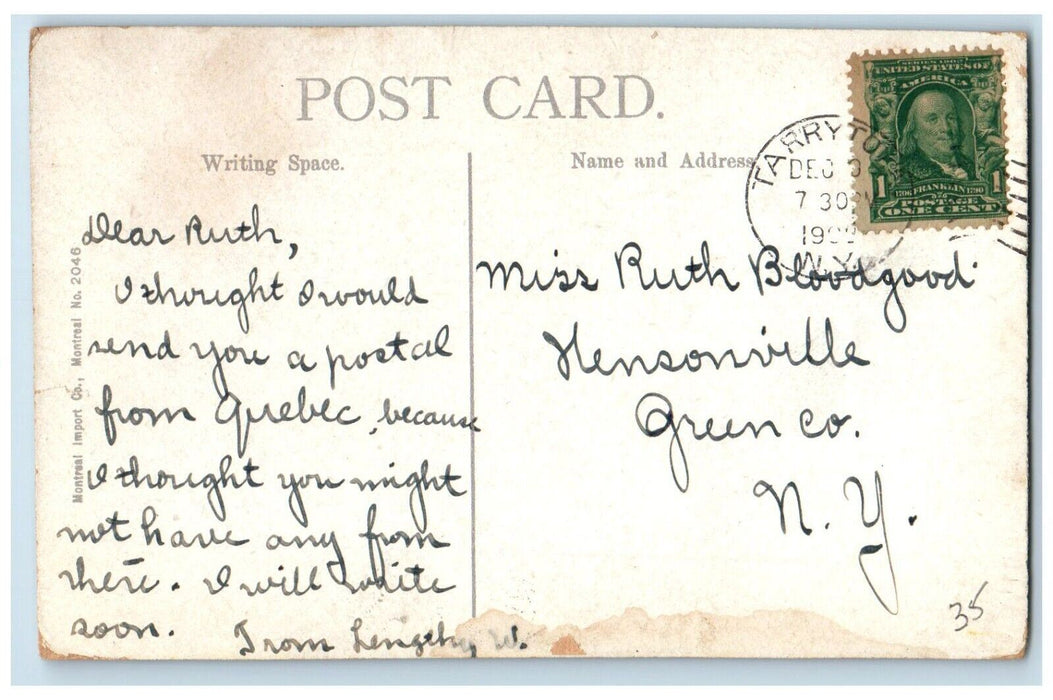 POST CARD.
Writing Space.
Name and Address
Montreal Import Co., Montreal No. 2046
Dear Ruth,
I thought I would
send you a postal
from Quebec, because
I thought you might
not have any from
there. I will write
soon.
From W.
Miss Ruth Bloodgood
Hensonville
Green Co.
N. Y.
TARRYTO
DEC
7 30
N.Y.
SERIES 1902
UNITED STATES OF
AMERICA
1 1
1706 FRANKLIN 1790
POSTAGE
ONE CENT
35